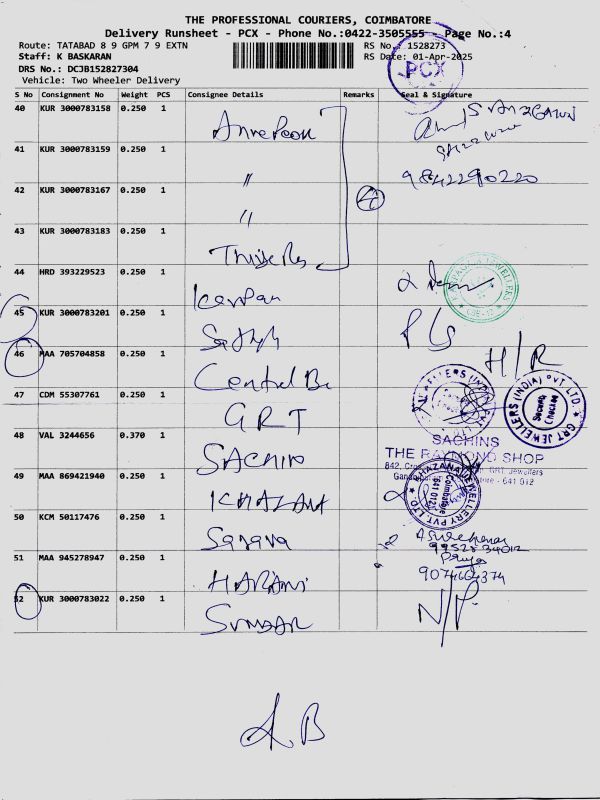 THE PROFESSIONAL COURIERS, COIMBATORE
Delivery Runsheet - PCX - Phone No.:0422-3505555 - Page No.:4
Route: TATABAD 8 9 GPM 7 9 EXTN
RS No. 1528273
Staff: K BASKARAN
RS Date: 01-Apr-2025
DRS No.: DCJB152827304
Vehicle: Two Wheeler Delivery
PCX
S No Consignment No Weight PCS Consignee Details Remarks Seal & Signature
40 KUR 3000783158 0.250 1
41 KUR 3000783159 0.250 1 "
9842290220
42 KUR 3000783167 0.250 1 " 4
43 KUR 3000783183 0.250 1
44 HRD 393229523 0.250 1
45 KUR 3000783201 0.250 1
46 MAA 705704858 0.250 1 H/R
47 CDM 55307761 0.250 1 GRT
GRT JEWELLERS (INDIA) PVT LTD
Security Checked
48 VAL 3244656 0.370 1 SACHIN
SACHINS
THE RAYMOND SHOP
GRT Jewellers
641 012
49 MAA 869421940 0.250 1 KHAZANA
KHAZANA JEWELLERY PVT LTD
Coimbatore
641 012
50 KCM 50117476 0.250 1 Sarava
51 MAA 945278947 0.250 1 HARANI
Priya
9074604374
52 KUR 3000783022 0.250 1 SUNDAR N/P.